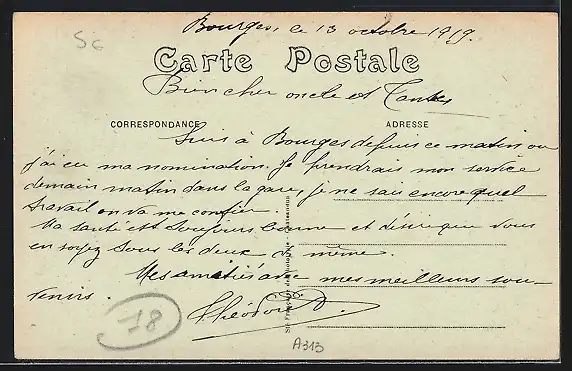 Bourges, le 13 octobre 1919.
Sc
Carte Postale
Bien cher oncle et Tante
CORRESPONDANCE ADRESSE
Suis à Bourges depuis ce matin ou
j'ai eu ma nomination. Je prendrais mon service
demain matin dans la gare, je ne sais encore quel
travail on va me confier.
Ma santé est toujours bonne et désire que vous
en soyez tous les deux de même.
Mes amitiés avec mes meilleurs sou-
venirs.
Théodore
18
A313